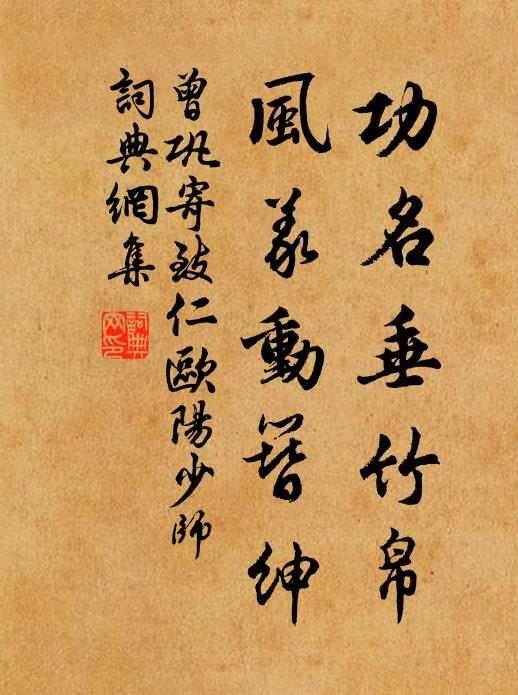 功名垂竹帛
風義動簪紳
曾巩寄致仁歐陽少師
詞典網集
詞典网印